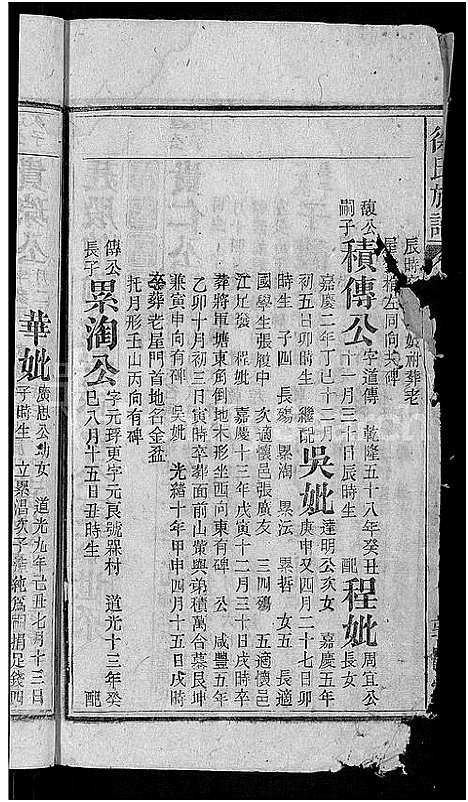 徐氏族譜
辰時
祔葬老
左同向共碑
馥公嗣子 積傳公 字道傳 乾隆五十八年癸丑十一月三十日辰時生 配 程妣 周宜公長女
嘉慶二年丁巳十二月初五日卯時生 繼配 吳妣 達明公次女 嘉慶五年庚申又四月二十七日卯
時生 子四 長殤 累淘 累沄 累哲 女五 長適
國學生張履中 次適懷邑張廣友 三四殤 五適懷邑
江廷發 程妣 嘉慶十三年戊寅十二月三十日戌時卒
葬將軍塘東角倒地木形坐西向東有碑 公 咸豐五年
乙卯十月初三日寅時卒葬面前山葉與弟積萬合墓艮坤
兼寅申向有碑 吳妣 光緒十年甲申四月十五日戌時
卒葬老屋門首地名金盆
托月形壬山丙向有碑
傳公長子 累淘公 字元琈更字元良號槑村 道光十三年癸巳八月十五日丑時生 配
華妣 廣恩公幼女 道光九年己丑七月十三日子時生 立累淐次子